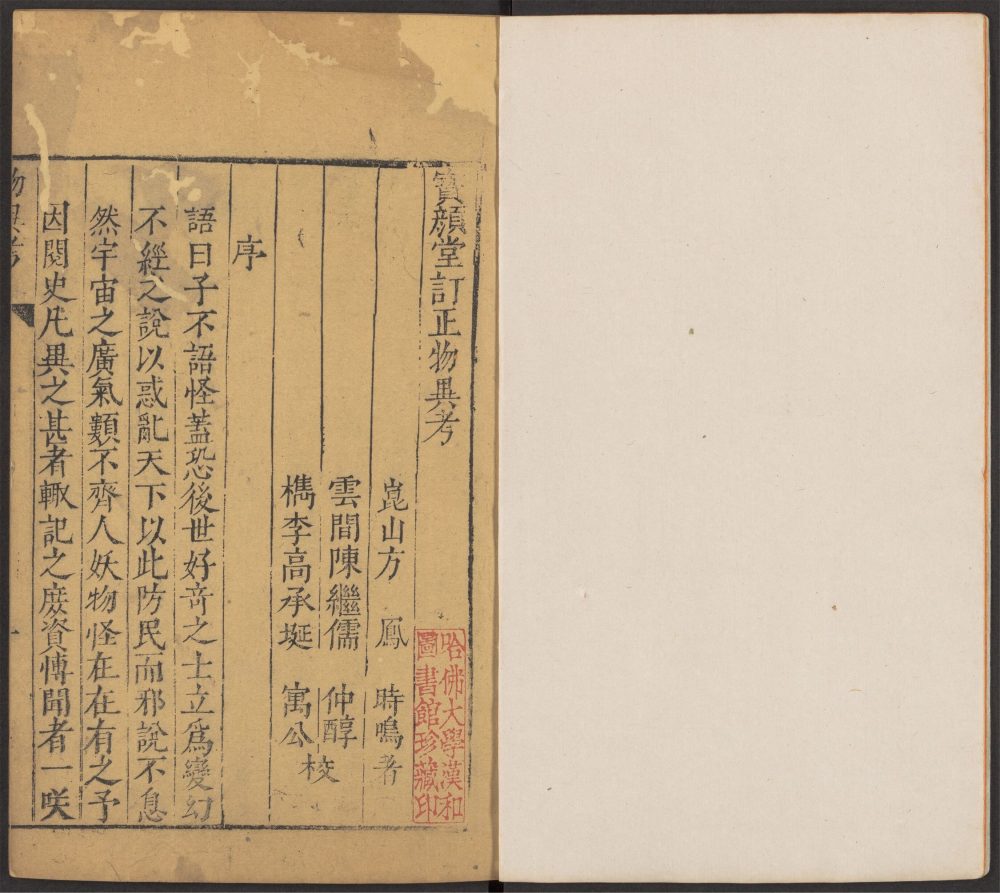 寶顏堂訂正物異考
崑山方 鳳 時鳴著
雲間陳繼儒 仲醇
檇李高承埏 寓公 校
序
語曰子不語怪蓋恐後世好竒之士立爲變幻
不經之說以惑亂天下以此防民而邪說不息
然宇宙之廣氣類不齊人妖物怪在在有之予
因閱史凡異之甚者輙記之庶資博聞者一咲
物異考
一
哈佛大學漢和
圖書館珍藏印